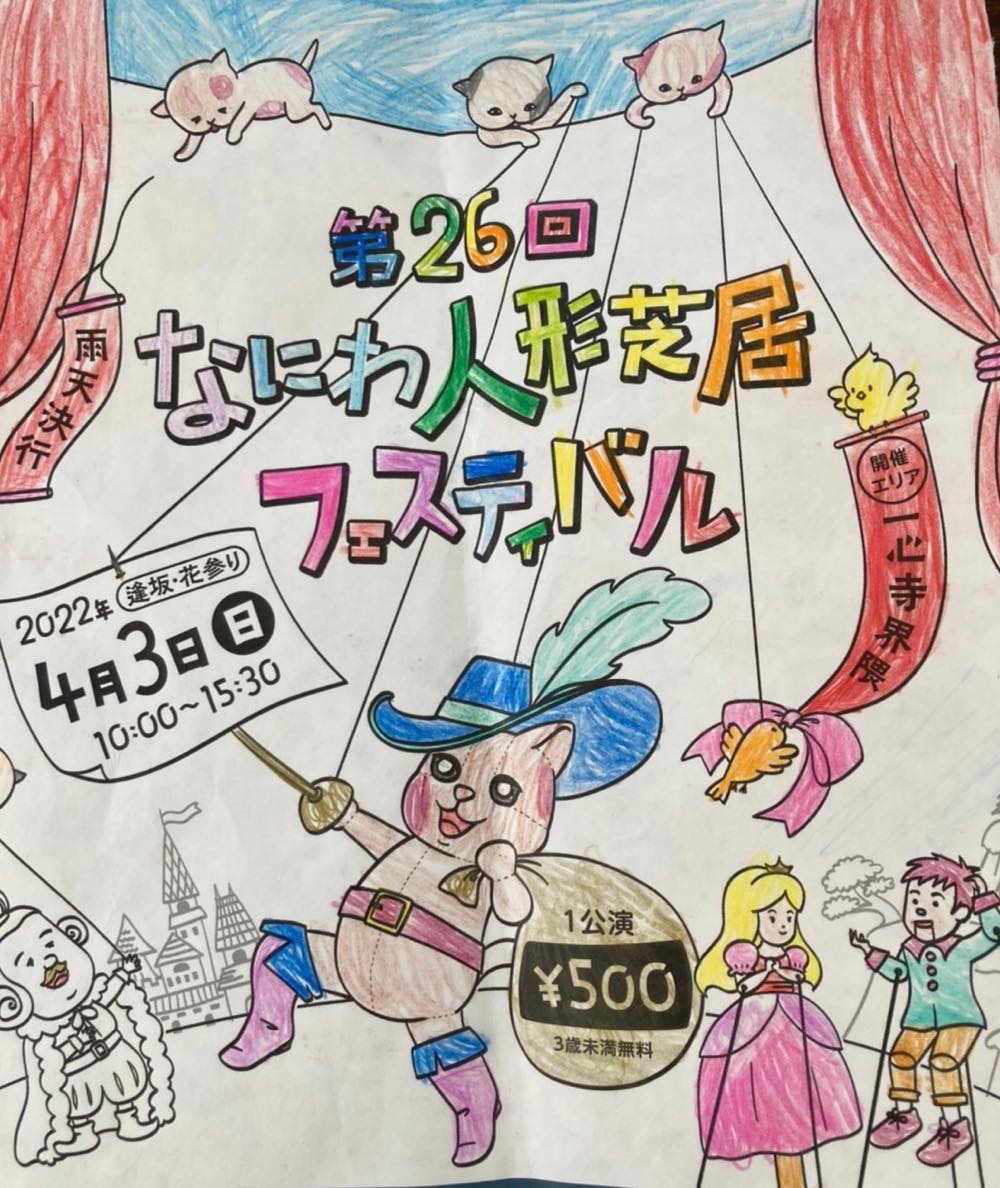 第26回
なにわ人形芝居
フェスティバル
雨天決行
開催
エリア
一心寺界隈
2022年 逢坂・花参り
4月3日 日
10:00〜15:30
1公演
¥500
3歳未満無料